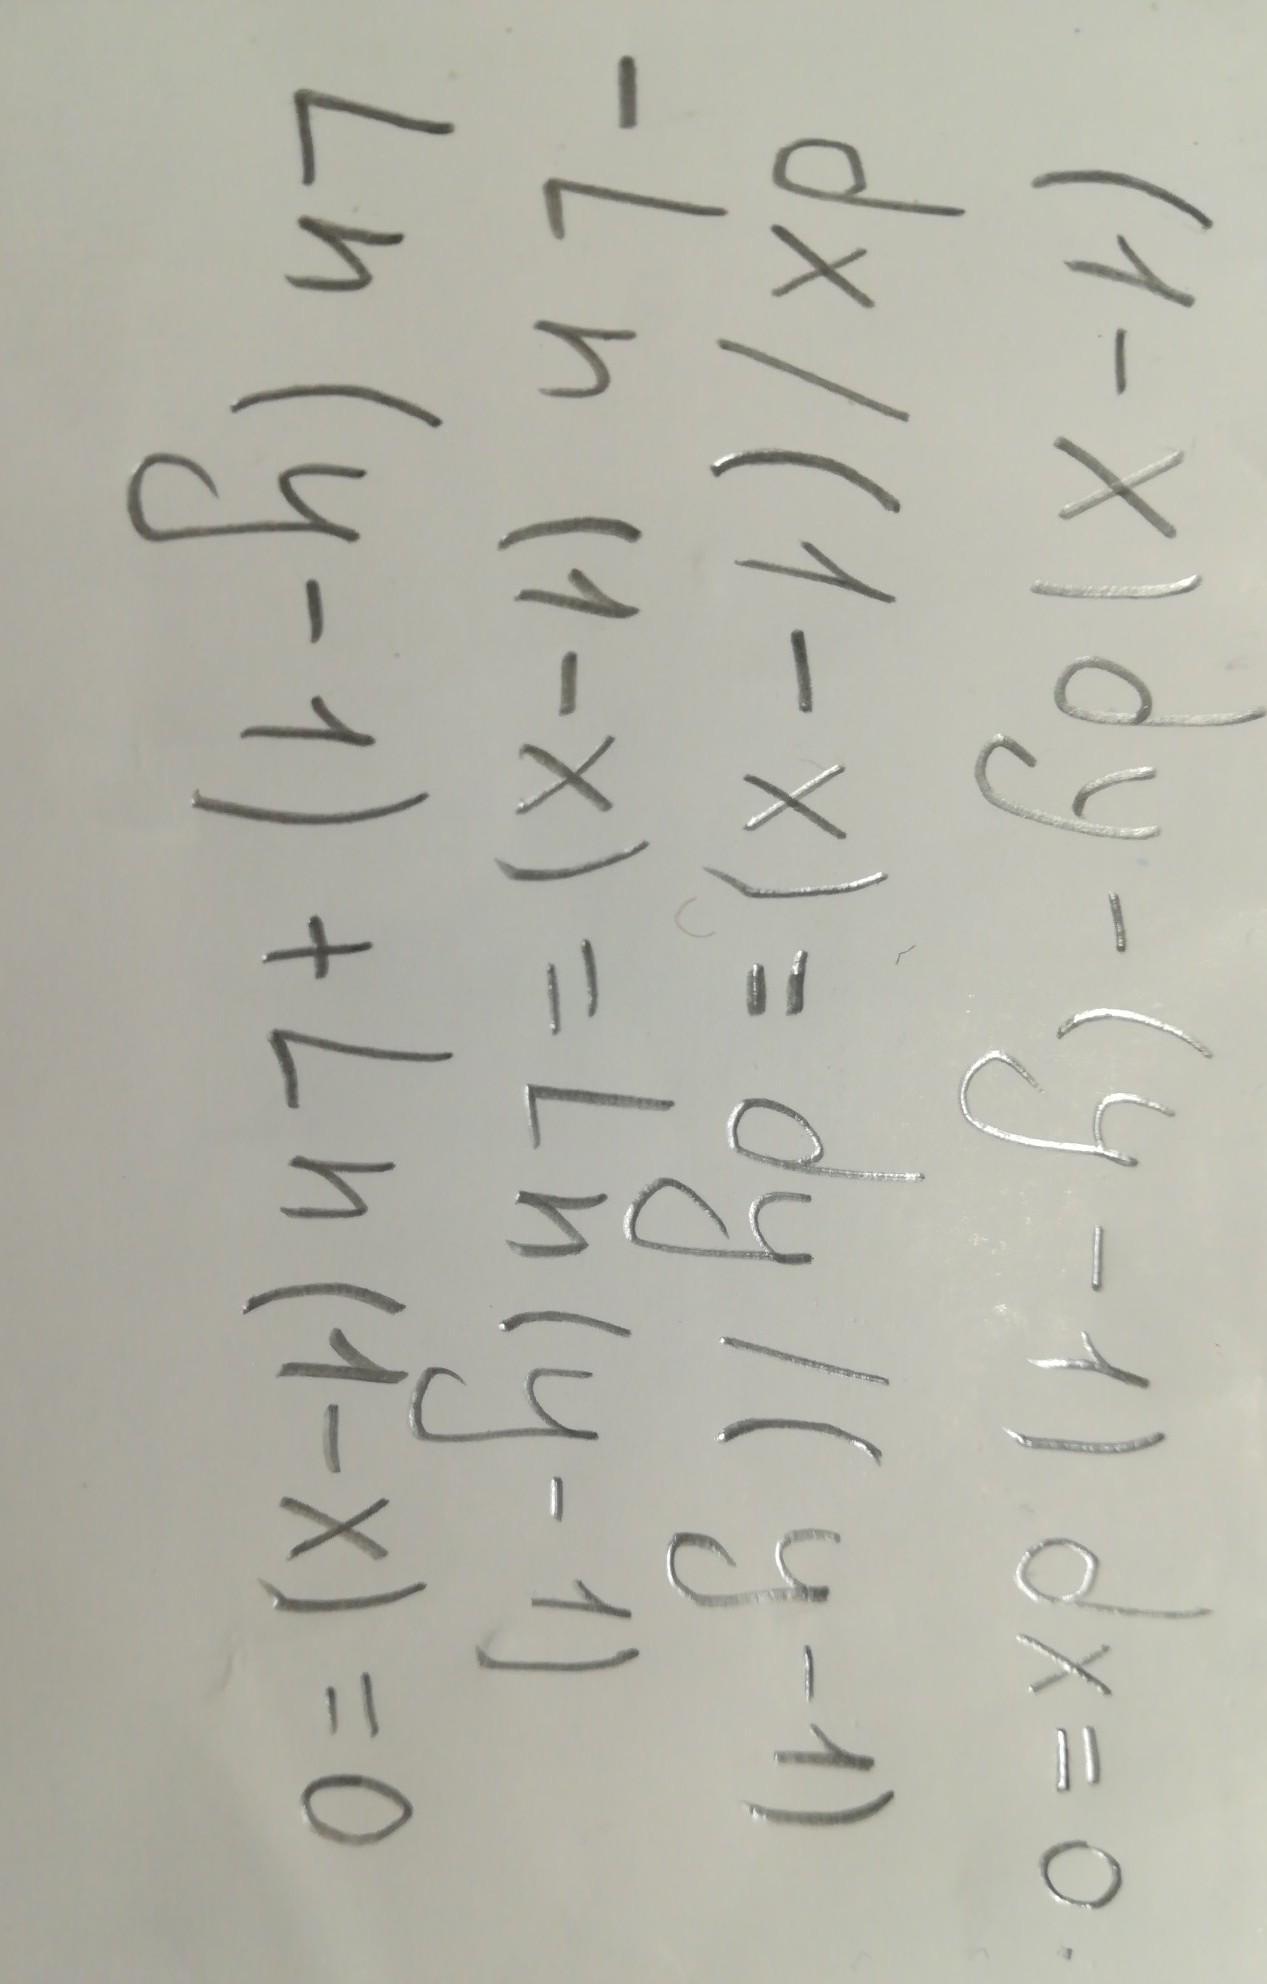 (1-x)dy-(y-1)dx=0.
dx/(1-x)=dy/(y-1)
-Ln(1-x)=Ln(y-1)
Ln(y-1)+Ln(1-x)=0